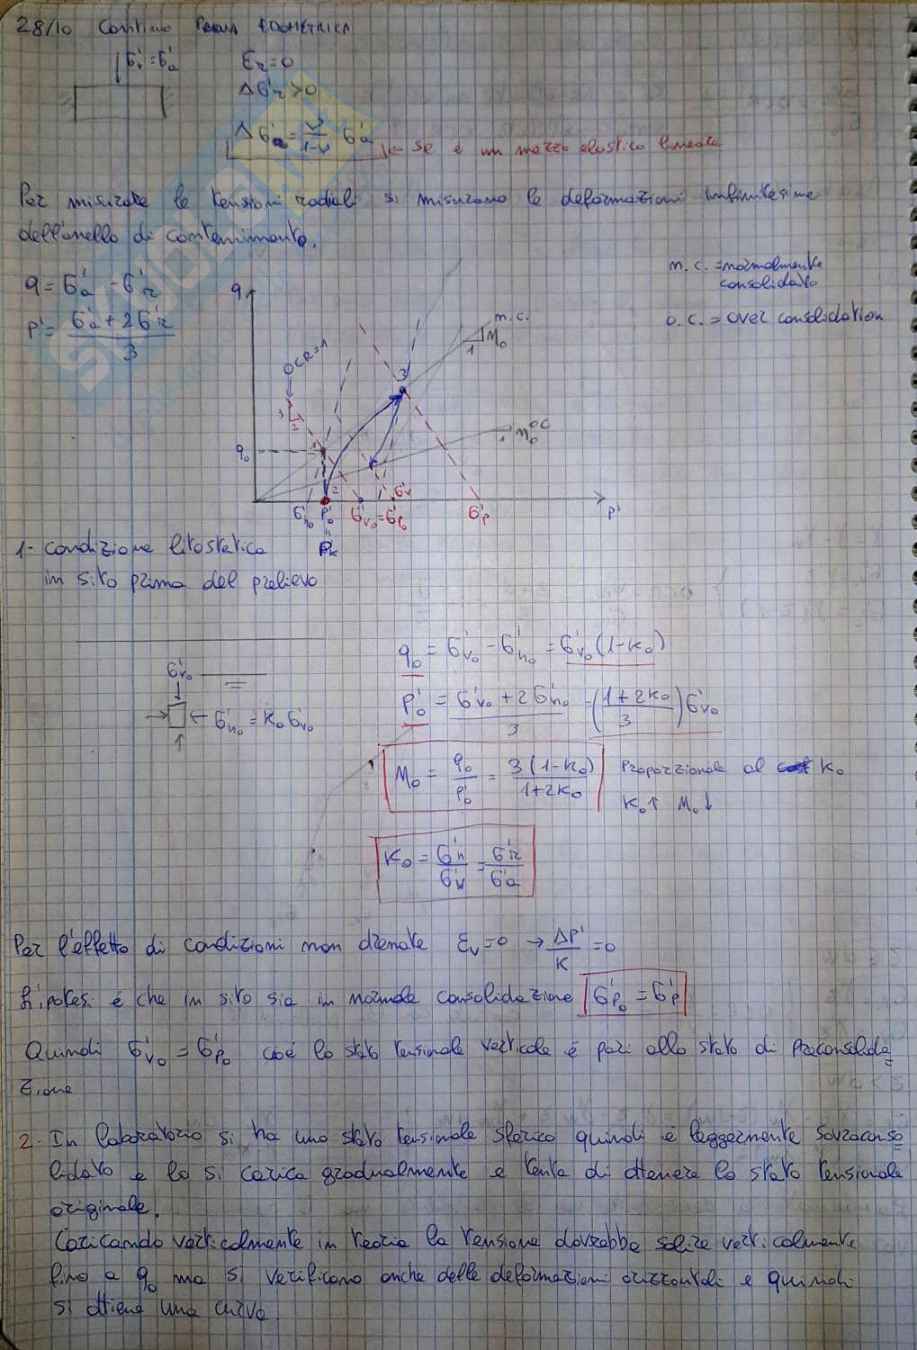 28/10 Continuo PROVA EDOMETRICA
σ'v = σ'a
εr = 0
Δσ'r > 0
Δσ'a = ν/(1-ν) σ'a ← SE è un mezzo elastico lineare
Per misurare le tensioni radiali si misurano le deformazioni infinitesime
dell'anello di contenimento.
q = σ'a - σ'r
p' = (σ'a + 2σ'r)/3
m.c. = normalmente
consolidato
o.c. = over consolidation
q
m.c.
1 M0
OCR=1
3
M0^OC
q0
1
2
σ'h0 p'0 σ'v0 = σ'p0 σ'v σ'p p'
p'k
1- condizione litostatica
in sito prima del prelievo
σ'v0
σ'h0 = K0 σ'v0
q0 = σ'v0 - σ'h0 = σ'v0 (1-K0)
p'0 = (σ'v0 + 2σ'h0)/3 = ((1+2K0)/3) σ'v0
M0 = q0/p'0 = 3(1-K0)/(1+2K0) Proporzionale al K0
K0↑ M0↓
K0 = σ'h/σ'v = σ'r/σ'a
Per l'effetto di condizioni non drenate εv=0 → Δp'/K = 0
hipotesi è che in sito sia in normale consolidazione σ'p0 = σ'p
Quindi σ'v0 = σ'p0 cioè lo stato tensionale verticale è pari allo stato di Preconsolida=
zione
2- In laboratorio si ha uno stato tensionale sferico quindi è leggermente sovraconso=
lidato e lo si carica gradualmente e tenta di ottenere lo stato tensionale
originale.
Caricando verticalmente in teoria la tensione dovrebbe salire verticalmente
fino a q0 ma si verificano anche delle deformazioni orizzontali e quindi
si ottiene una curva.